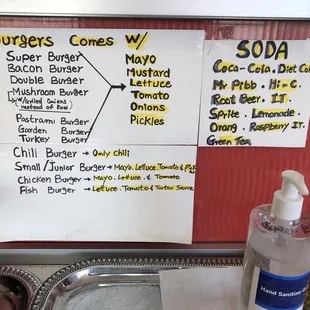 Burgers Comes W/
Super Burger
Bacon Burger
Double Burger
Mushroom Burger
(w/Grilled Onions
instead of Raw)
Pastrami Burger
Garden Burger
Turkey Burger
Mayo
Mustard
Lettuce
Tomato
Onions
Pickles
Chili Burger → Only Chili
Small/Junior Burger → Mayo. Lettuce. Tomato &
Chicken Burger → Mayo. Lettuce. & Tomato
Fish Burger → Lettuce. Tomato & Tartar Sauce
SODA
Coca-Cola. Diet Co
Mr Pibb. Hi-C.
Root Beer. IT.
Sprite. Lemonade.
Orang. Raspberry IT.
Green Tea
Hand Sanitizer